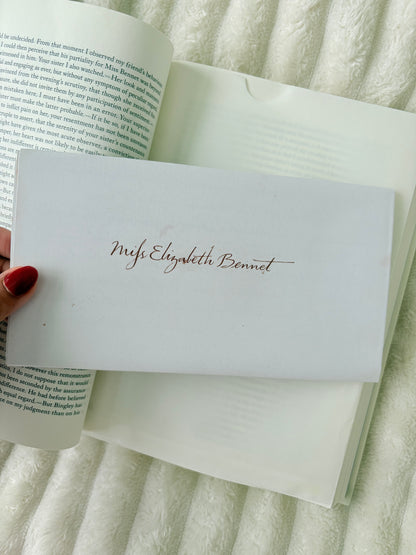 be undecided. From that moment I observed my friend's
I could then perceive that his partiality for Miss Bennet was
in him. Your sister I also watched.—Her look and
and engaging as ever, but without any symptom of peculiar
from the evening's scrutiny, that though
she did not invite them by any participation of sentiment
mistaken here, I must have been in an error. Your superior
must make the latter probable.—If it be so, if I have
to inflict pain on her, your resentment has not been
to assert, that the serenity of your sister's
have given the most acute observer, a
her heart was not likely to be easily
Miſs Elizabeth Bennet
this remonstrance
I do not suppose that it would
been seconded by the assurance
difference. He had before believed
equal regard.—But Bingley has
on my judgment than on